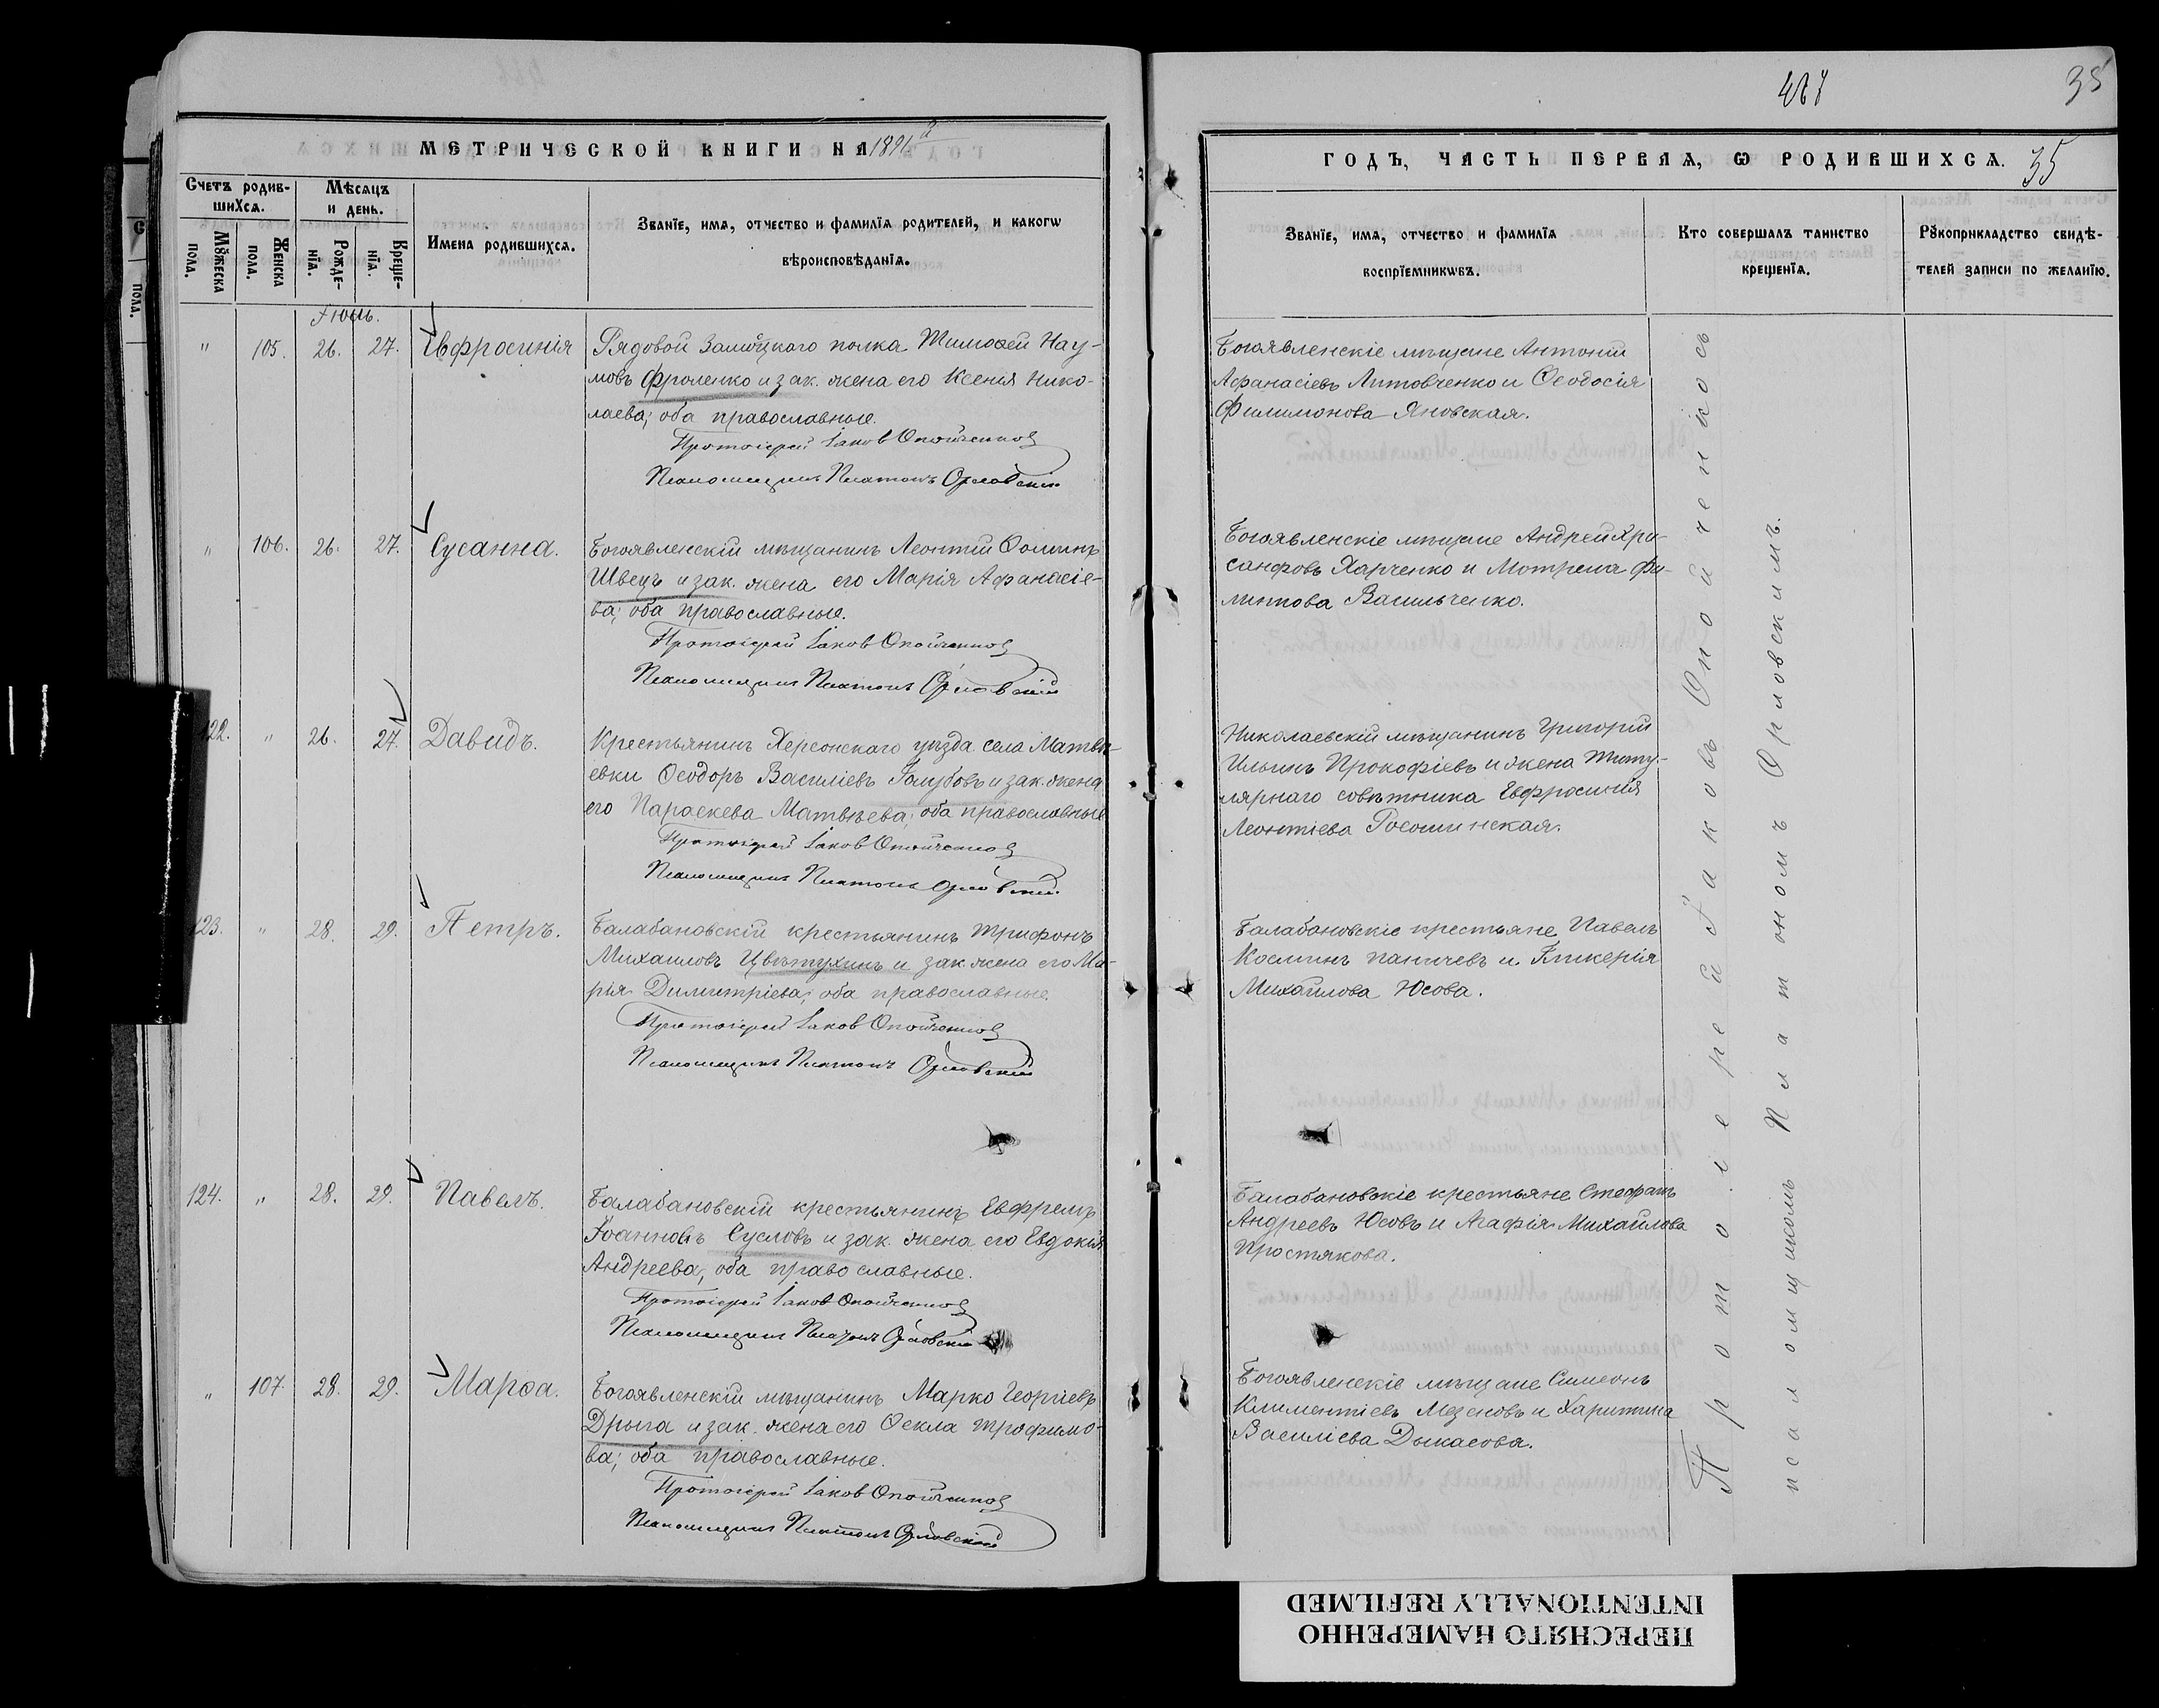 МЕТРИЧЕСКОЙ КНИГИ НА 1891й
Счетъ родив-
шихся.
Мѣсяцъ
и день.
Мужеска
пола.
Женска
пола.
Рожде-
нія.
Креще-
нія.
Имена родившихся.
Званіе, имя, отчество и фамилія родителей, и какого
вѣроисповѣданія.
" 105. 26. 27. Евфросинія
Рядовой Замоцкаго полка Тимоѳей Нау-
мовъ Фроленко и зак. жена его Ксенія Нико-
лаева; оба православные.
Протоіерей Іаковъ Опойченковъ
Псаломщикъ Платонъ Орловскій
" 106. 26. 27. Сусанна.
Богоявленскій мѣщанинъ Леонтій Ѳоминъ
Швецъ и зак. жена его Марія Афанасіе-
ва; оба православные.
Протоіерей Іаковъ Опойченковъ
Псаломщикъ Платонъ Орловскій
122. " 26. 27. Давидъ.
Крестьянинъ Херсонскаго уѣзда села Матвѣ-
евки Ѳеодоръ Василіевъ Голубовъ и зак. жена
его Параскева Матвѣева; оба православные
Протоіерей Іаковъ Опойченковъ
Псаломщикъ Платонъ Орловскій.
123. " 28. 29. Петръ.
Балабановскій крестьянинъ Трифонъ
Михаиловъ Цвѣтухинъ и зак. жена его Ма-
рія Димитріева; оба православные.
Протоіерей Іаковъ Опойченковъ
Псаломщикъ Платонъ Орловскій
124. " 28. 29. Павелъ.
Балабановскій крестьянинъ Евфремъ
Іоанновъ Сусловъ и зак. жена его Евдокія
Андреева; оба православные.
Протоіерей Іаковъ Опойченковъ
Псаломщикъ Платонъ Орловскій
" 107. 28. 29. Марѳа.
Богоявленскій мѣщанинъ Марко Георгіевъ
Дрыга и зак. жена его Ѳекла Трофимо-
ва; оба православные.
Протоіерей Іаковъ Опойченковъ
Псаломщикъ Платонъ Орловскій
35
ГОДЪ, ЧАСТЬ ПЕРВАЯ, Ѡ РОДИВШИХСЯ. 35
Званіе, имя, отчество и фамилія
воспріемниковъ.
Кто совершалъ таинство
крещенія.
Рукоприкладство свидѣ-
телей записи по желанію.
Богоявленскіе мѣщане Антоній
Афанасіевъ Литовченко и Ѳеодосія
Филимонова Яновская.
Богоявленскіе мѣщане Андрей Хри-
санфовъ Харченко и Мотрена Фи-
липпова Васильченко.
Николаевскій мѣщанинъ Григорій
Ильинъ Прокофіевъ и жена Титу-
лярнаго совѣтника Евфросинія
Леонтіева Росошинская.
Балабановскіе крестьяне Павелъ
Косминъ Паничевъ и Гликерія
Михайлова Юсова.
Балабановскіе крестьяне Стефанъ
Андреевъ Юсовъ и Агафія Михайлова
Простякова.
Богоявленскіе мѣщане Симеонъ
Климентіевъ Мезеновъ и Харитина
Василіева Дыкасова.
Протоіерей Іаковъ Опойченковъ
псаломщикомъ Платономъ Орловскимъ.
ПЕРЕСНЯТО НАМЕРЕННО
INTENTIONALLY REFILMED